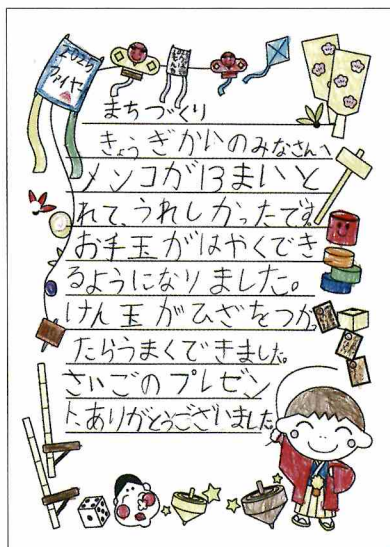 2025
ファイヤー
まちづくり
きょうぎかいのみなさんへ
メンコが13まいと
れて、うれしかったです。
お手玉がはやくでき
るようになりました。
けん玉がひざをつかっ
たらうまくできました。
さいごのプレゼン
ト、ありがとうございました。